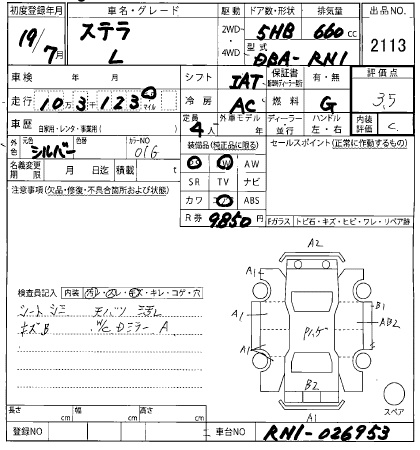 初度登録年月 車名・グレード 駆動 ドア数・形状 排気量 出品NO
19/7月 ステラ 2WD- 5HB 660cc 2113
L 4WD 型式 DBA-RN1
車検 年 月 シフト IAT 保証書 有・無 評価点
走行 10万3千1230 マイル 冷房 AC 燃料 G 3.5
車歴 自家用・レンタ・事業用( ) 定員 4人 外車モデル 年 ディーラー 並行 ハンドル 左・右 内装評価 C
外色 元色 シルバー 色替 カラーNO 01G 装備品(純正品に限る) セールスポイント(正常に作動するもの)
名義変更期限 月 日迄 積載 t AW
SR TV ナビ
注意事項(欠品・修復・不具合箇所および状態) カワ ABS
R券 9850円 Fガラス トビ石・キズ・ヒビ・ワレ・リペア跡
A2
A1 A1
検査員記入 内装 ヨゴレ・スレ・キズ・キレ・コゲ・穴 B1
シートシミ 天バリ 汚れ A1 AB2
キズB W/C Dミラー A パンク
A1
B2
長さ cm 幅 cm 高さ cm A1 スペア
登録NO 車台NO RN1-026953